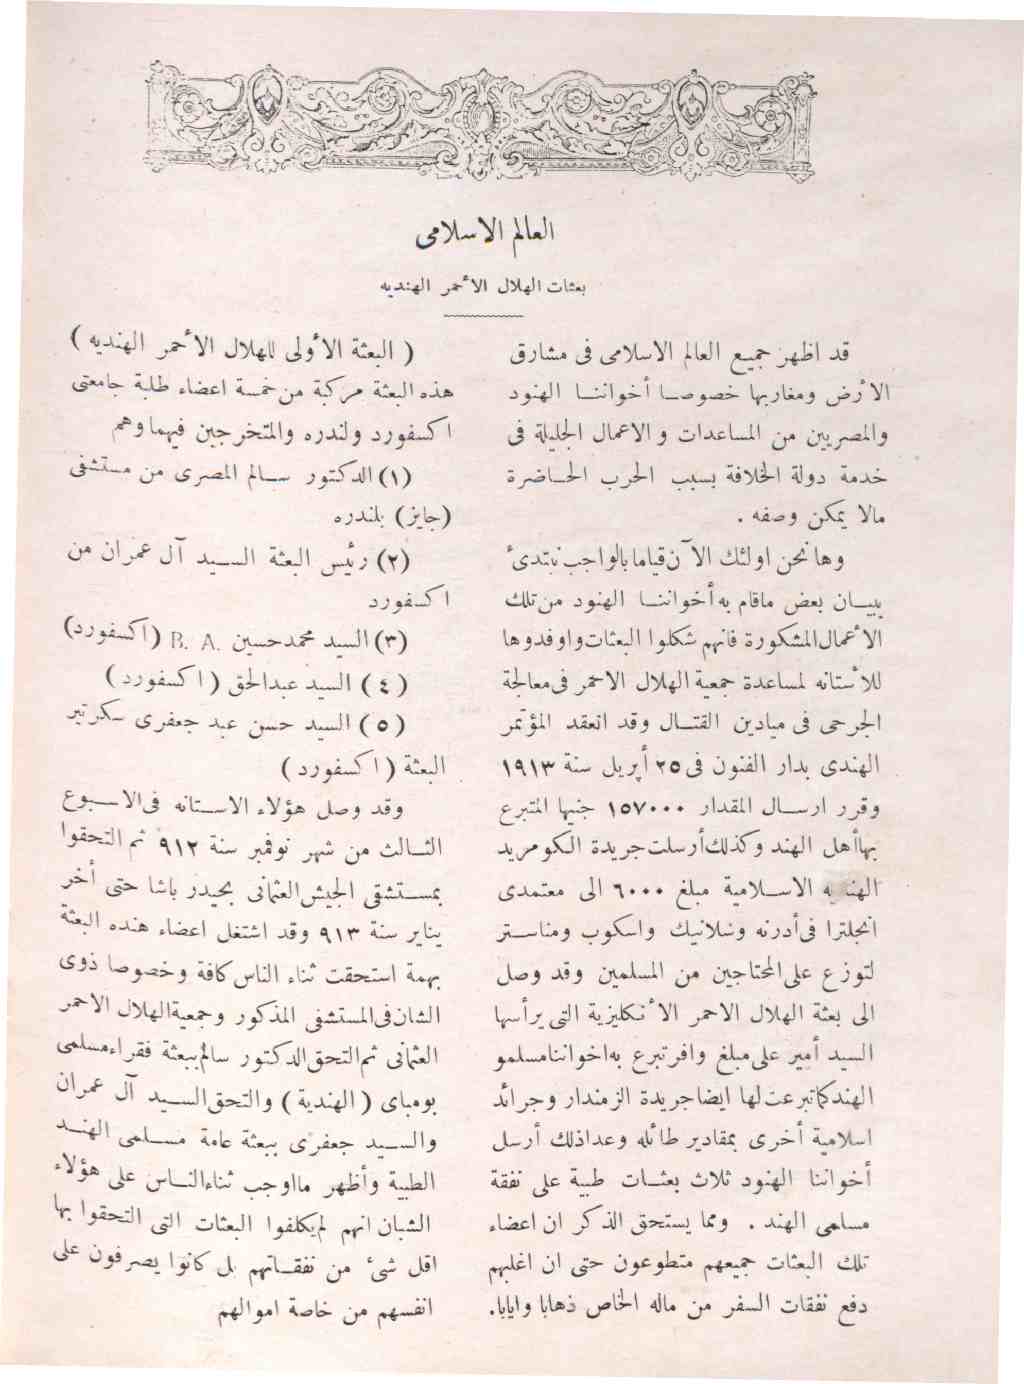 العالم الاسلامى
بعثات الهلال الأحمر الهنديه
قد اظهر جميع العالم الاسلامى فى مشارق
الأرض ومغاربها خصوصا أخواننا الهنود
والمصريين من المساعدات والاعمال الجليلة فى
خدمة دولة الخلافة بسبب الحرب الحاضرة
مالا يمكن وصفه .
وها نحن اولئك الآن قياما بالواجب نبتدئ
ببيان بعض ماقام به أخواننا الهنود من تلك
الأعمال المشكورة فانهم شكلوا البعثات واوفدوها
للأستانه لمساعدة جمعية الهلال الاحمر فى معالجة
الجرحى فى ميادين القتال وقد انعقد المؤتمر
الهندى بدار الفنون فى ٢٥ أپريل سنة ١٩١٣
وقرر ارسال المقدار ١٥٧٠٠٠ جنيها المتبرع
بها أهل الهند وكذلك أرسلت جريدة الكومريد
الهنديه الاسلامية مبلغ ٦٠٠٠ الى معتمدى
انجلترا فى أدرنه وسلانيك واسكوب ومناستر
لتوزع على المحتاجين من المسلمين وقد وصل
الى بعثة الهلال الاحمر الأنكليزية التى يرأسها
السيد أمير على مبلغ وافر تبرع به اخواننا مسلمو
الهند كما تبرعت لها ايضا جريدة الزمندار وجرائد
اسلامية أخرى بمقادير طائله وعدا ذلك أرسل
أخواننا الهنود ثلاث بعثات طبية على نفقة
مسلمى الهند . ومما يستحق الذكر ان اعضاء
تلك البعثات جميعهم متطوعون حتى ان اغلبهم
دفع نفقات السفر من ماله الخاص ذهابا وايابا.
( البعثة الأولى للهلال الأحمر الهنديه )
هذه البعثة مركبة من خمسة اعضاء طلبة جامعتى
اكسفورد ولندره والمتخرجين فيهما وهم
(١) الدكتور سالم المصرى من مستشفى
(جايز) بلندره
(٢) رئيس البعثة السيد آل عمران من
اكسفورد
(٣) السيد محمد حسين B. A. (اكسفورد)
(٤) السيد عبدالحق (اكسفورد)
(٥) السيد حسن عبد جعفرى سكرتير
البعثة (اكسفورد)
وقد وصل هؤلاء الاستانه فى الاسبوع
الثالث من شهر نوفمبر سنة ٩١٢ ثم التحقوا
بمستشفى الجيش العثمانى بحيدر پاشا حتى أخر
يناير سنة ٩١٣ وقد اشتغل اعضاء هذه البعثة
بهمة استحقت ثناء الناس كافة وخصوصا ذوى
الشان فى المستشفى المذكور وجمعية الهلال الاحمر
العثمانى ثم التحق الدكتور سالم ببعثة فقراء مسلمى
بومباى (الهندية) والتحق السيد آل عمران
والسيد جعفرى ببعثة عامة مسلمى الهند
الطبية وأظهر مااوجب ثناء الناس على هؤلاء
الشبان انهم لم يكلفوا البعثات التى التحقوا بها
اقل شئ من نفقاتهم بل كانوا يصرفون على
انفسهم من خاصة اموالهم